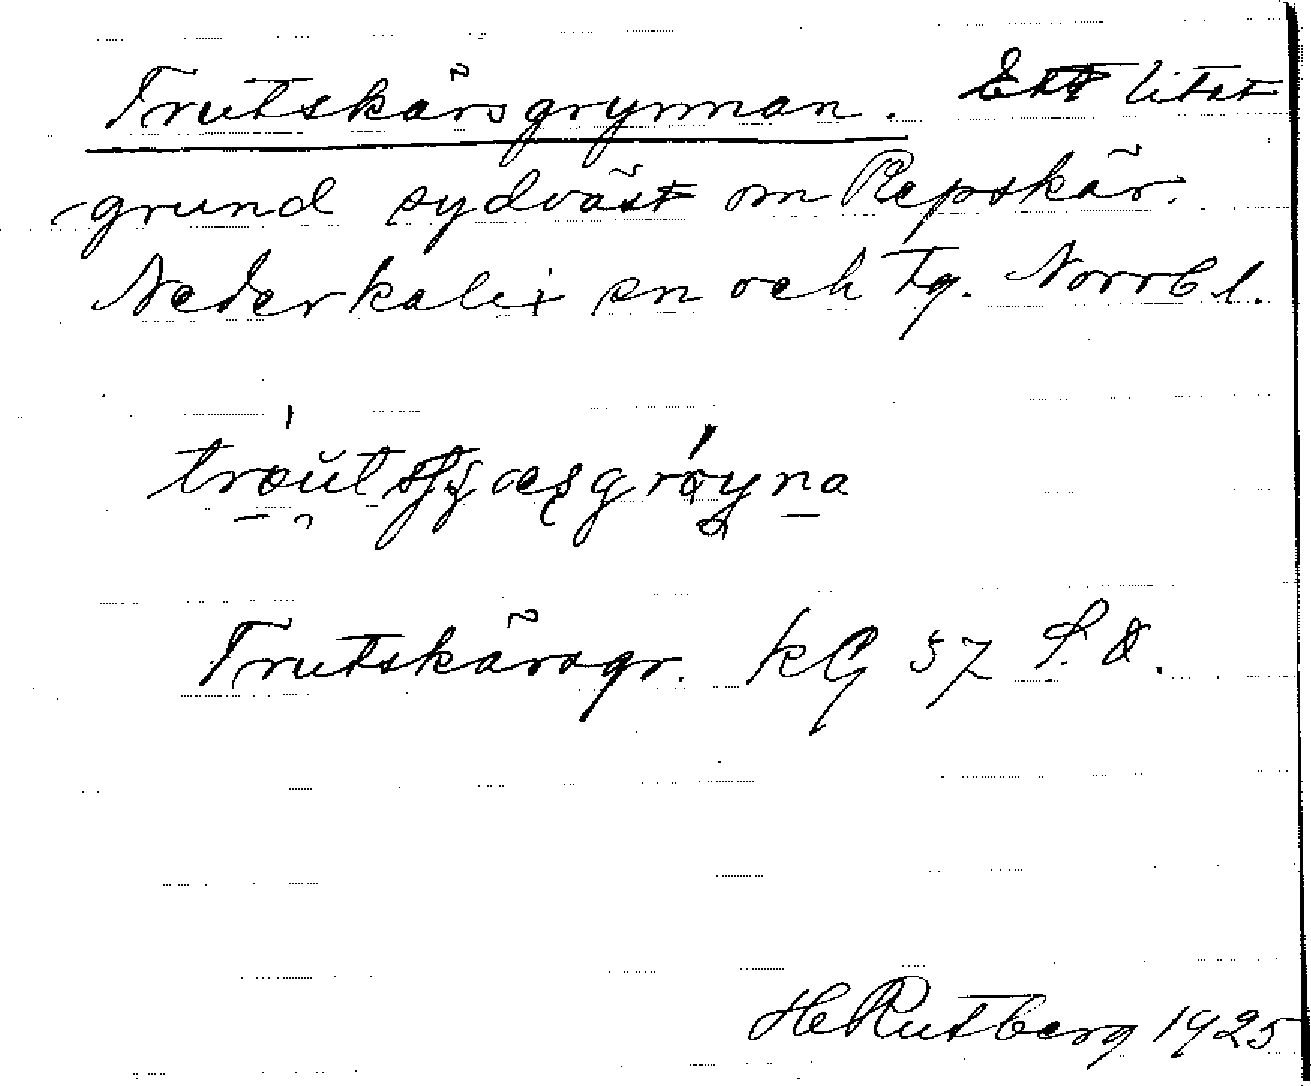 Trutskärsgrynnan. Ett litet
grund sydväst om Repskär.
Nederkalix sn och tg. Norrb l.
Trutskärsgr. KG 37 S.O.
H Rutberg 1925